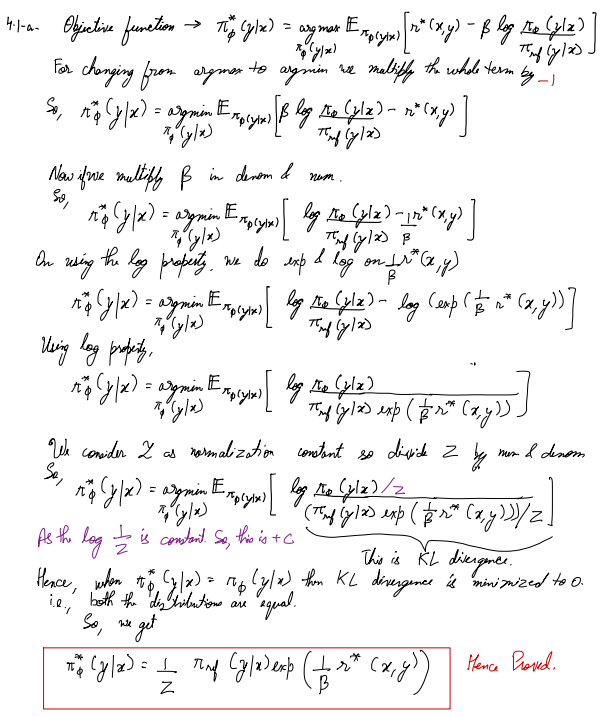 4.1-a. Objective function → π*_ϕ(y|x) = argmax_{π_ϕ(y|x)} 𝔼_{π_ϕ(y|x)} [ r*(x,y) - β log π_ϕ(y|x) / π_ref(y|x) ]
For changing from argmax to argmin we multiply the whole term by -1
So, π*_ϕ(y|x) = argmin_{π_ϕ(y|x)} 𝔼_{π_ϕ(y|x)} [ β log π_ϕ(y|x) / π_ref(y|x) - r*(x,y) ]
Now if we multiply β in denom & num.
So,
π*_ϕ(y|x) = argmin_{π_ϕ(y|x)} 𝔼_{π_ϕ(y|x)} [ log π_ϕ(y|x) / π_ref(y|x) - 1/β r*(x,y) ]
On using the log property, we do exp & log on 1/β r*(x,y)
π*_ϕ(y|x) = argmin_{π_ϕ(y|x)} 𝔼_{π_ϕ(y|x)} [ log π_ϕ(y|x) / π_ref(y|x) - log (exp(1/β r*(x,y))) ]
Using log property,
π*_ϕ(y|x) = argmin_{π_ϕ(y|x)} 𝔼_{π_ϕ(y|x)} [ log π_ϕ(y|x) / π_ref(y|x) exp(1/β r*(x,y)) ]
We consider Z as normalization constant so divide Z by num & denom
So,
π*_ϕ(y|x) = argmin_{π_ϕ(y|x)} 𝔼_{π_ϕ(y|x)} [ log π_ϕ(y|x)/Z / (π_ref(y|x) exp(1/β r*(x,y)))/Z ]
As the log 1/Z is constant. So, this is + C
This is KL divergence.
Hence, when π*_ϕ(y|x) = π_ϕ(y|x) then KL divergence is minimized to 0.
i.e., both the distributions are equal.
So, we get
π*_ϕ(y|x) = 1/Z π_ref(y|x) exp(1/β r*(x,y))
Hence Proved.